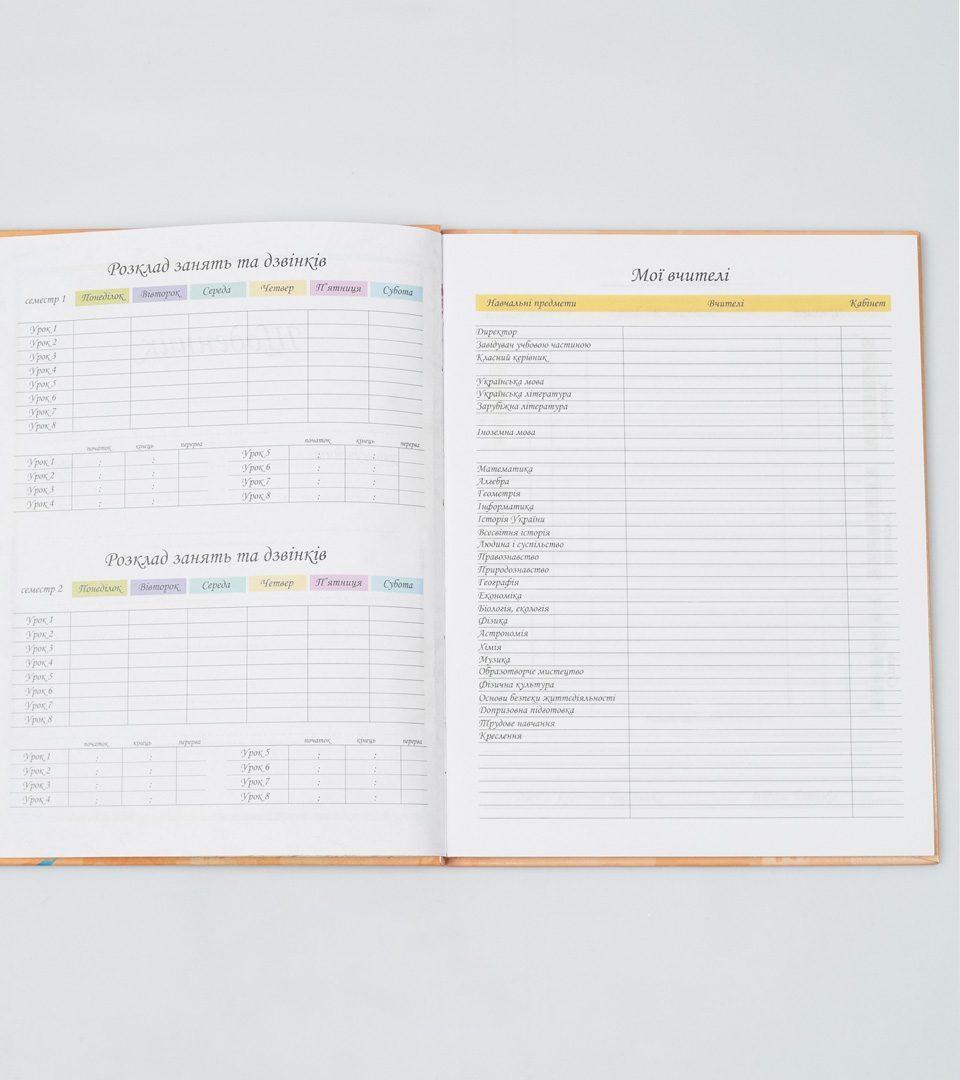 Розклад занять та дзвінків
семестр 1 Понеділок Вівторок Середа Четвер П'ятниця Субота
Урок 1
Урок 2
Урок 3
Урок 4
Урок 5
Урок 6
Урок 7
Урок 8
початок кінець перерва початок кінець перерва
Урок 1 : : Урок 5 : :
Урок 2 : : Урок 6 : :
Урок 3 : : Урок 7 : :
Урок 4 : : Урок 8 : :
Розклад занять та дзвінків
семестр 2 Понеділок Вівторок Середа Четвер П'ятниця Субота
Урок 1
Урок 2
Урок 3
Урок 4
Урок 5
Урок 6
Урок 7
Урок 8
початок кінець перерва початок кінець перерва
Урок 1 : : Урок 5 : :
Урок 2 : : Урок 6 : :
Урок 3 : : Урок 7 : :
Урок 4 : : Урок 8 : :
Мої вчителі
Навчальні предмети Вчителі Кабінет
Директор
Завідувач учбовою частиною
Класний керівник
Українська мова
Українська література
Зарубіжна література
Іноземна мова
Математика
Алгебра
Геометрія
Інформатика
Історія України
Всесвітня історія
Людина і суспільство
Правознавство
Природознавство
Географія
Економіка
Біологія, екологія
Фізика
Астрономія
Хімія
Музика
Образотворче мистецтво
Фізична культура
Основи безпеки життєдіяльності
Допризовна підготовка
Трудове навчання
Креслення